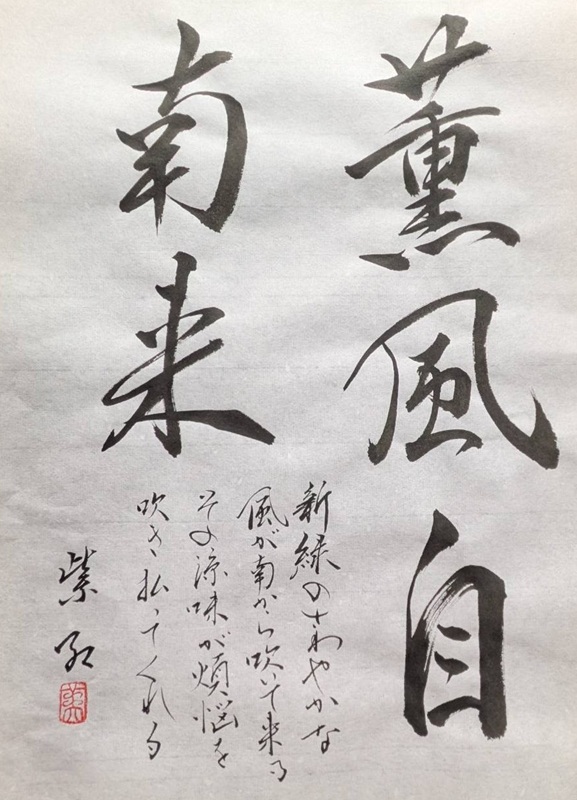 薫風自
南来
新緑のさわやかな
風が南から吹いて来る
その涼味が煩悩を
吹き払ってくれる
紫